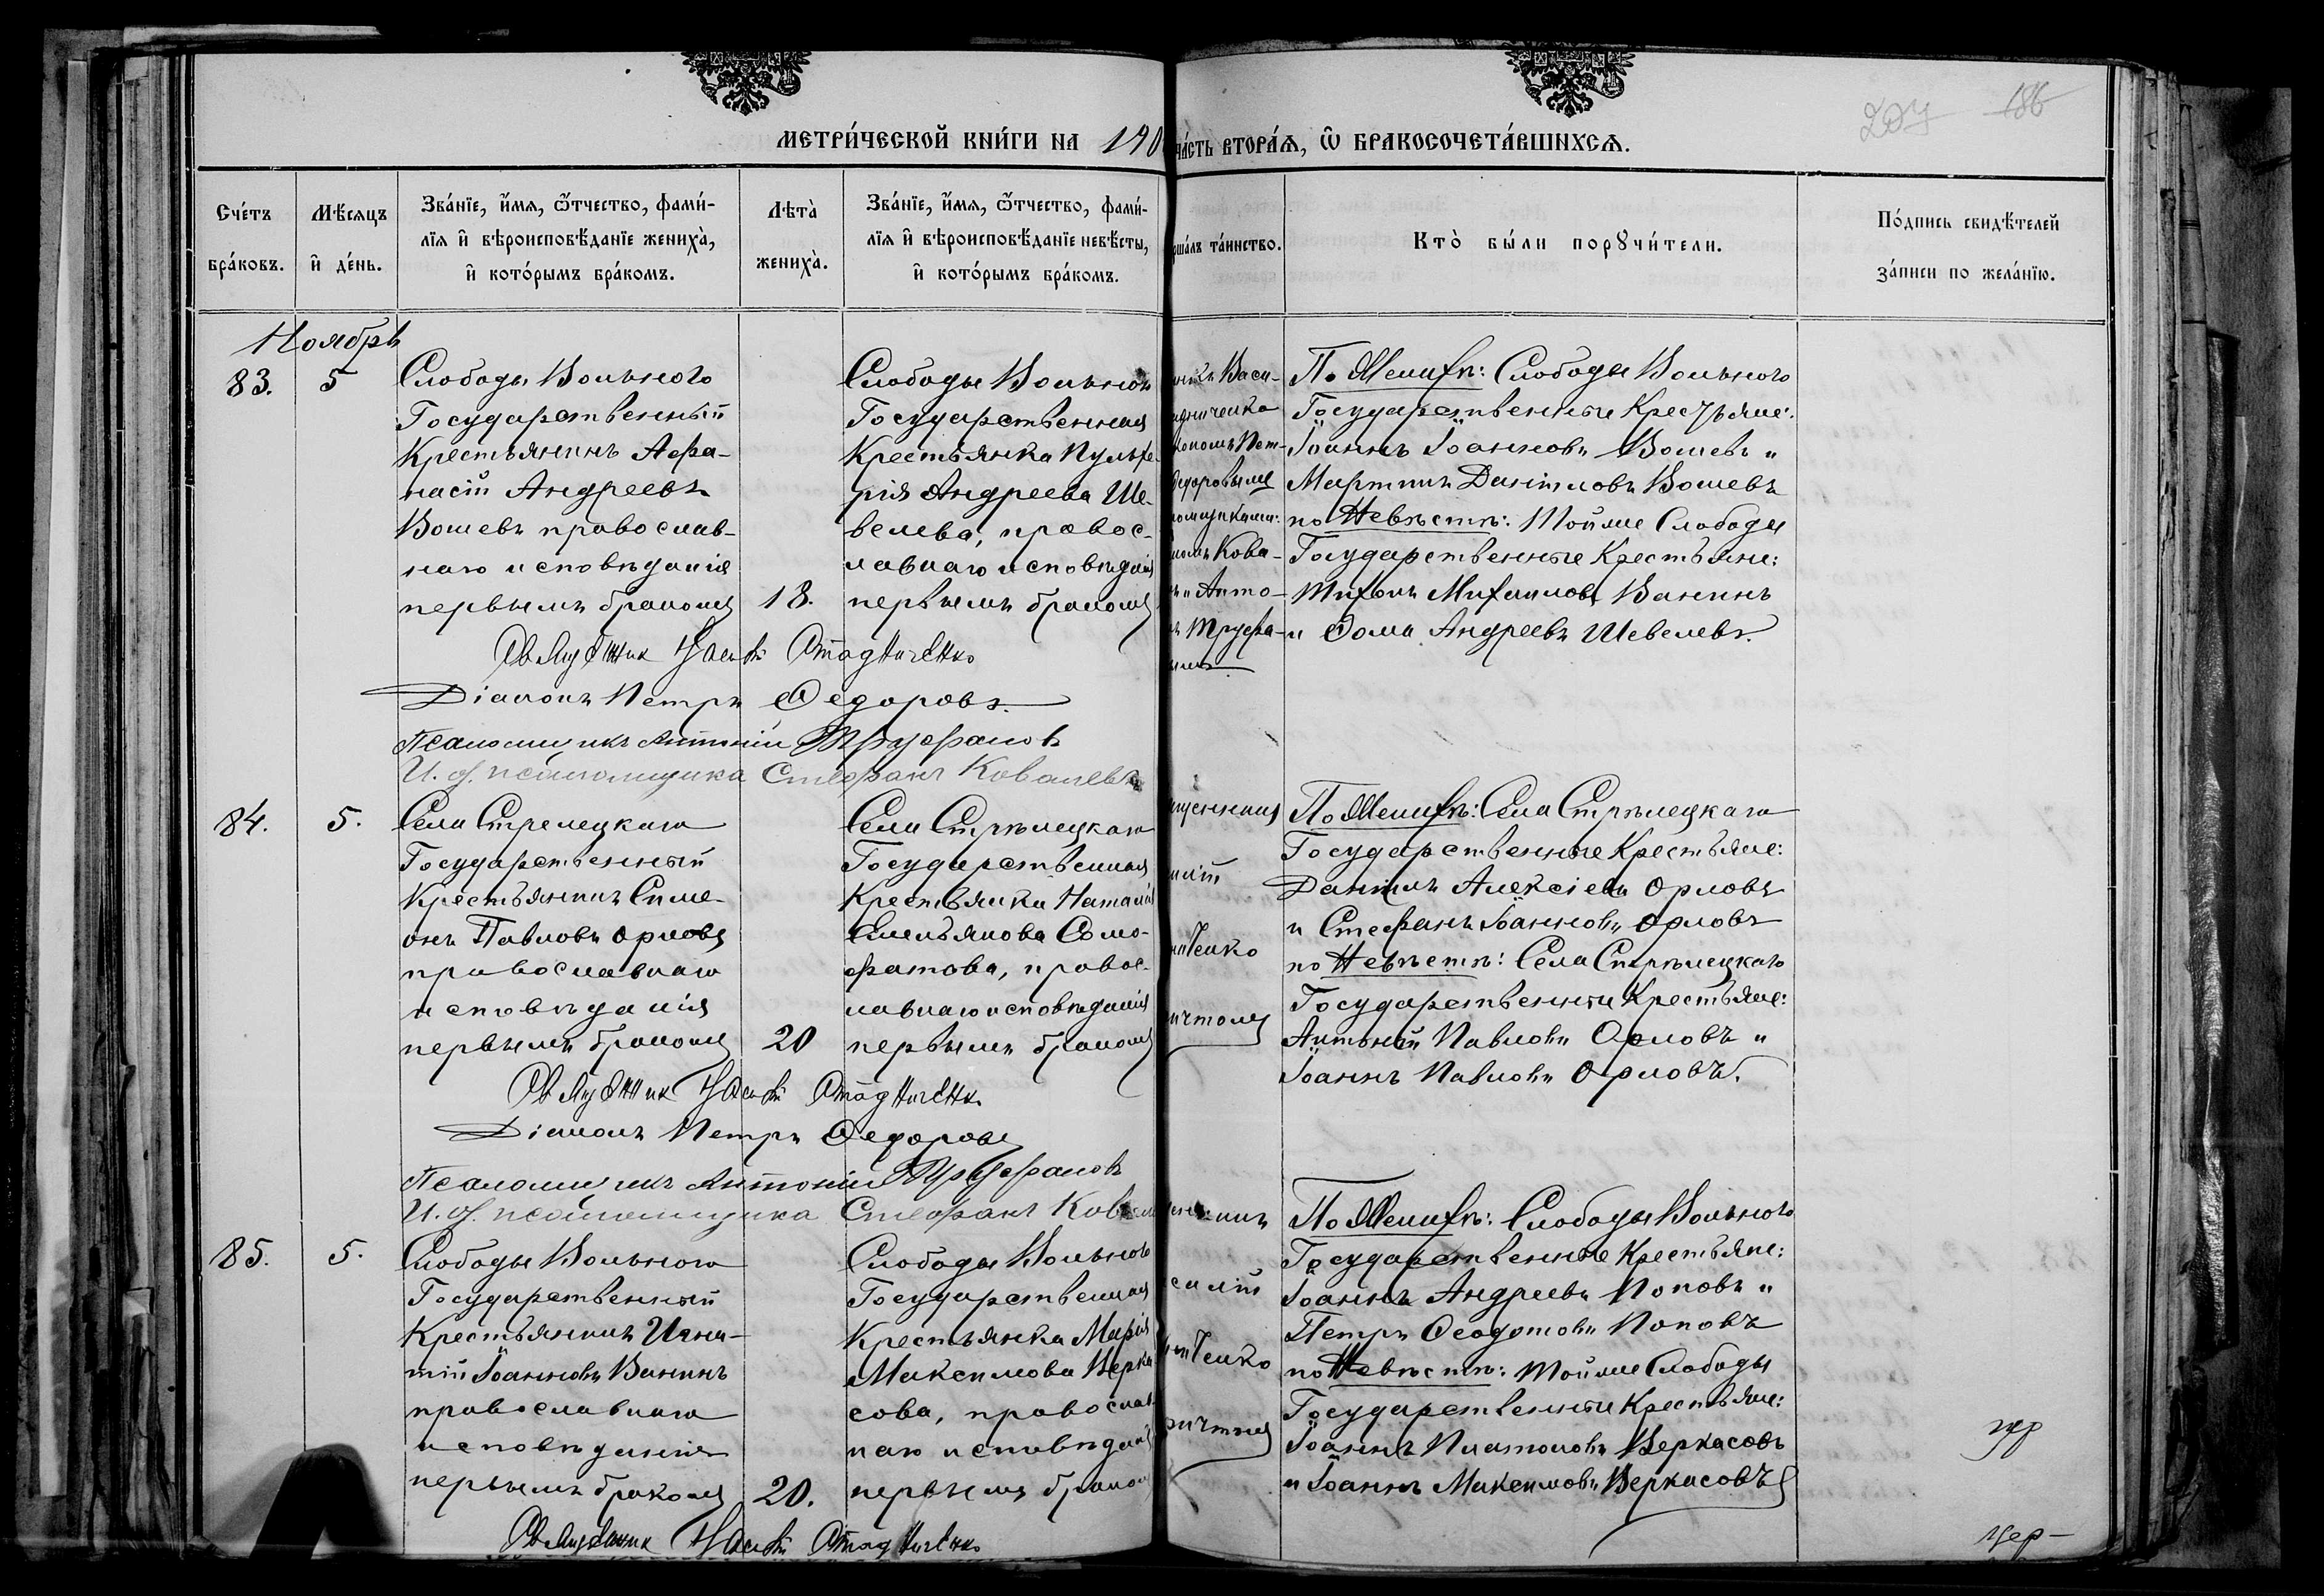 204 186
МЕТРИ́ЧЕСКОЙ КНИ́ГИ НА 190
ЧА́СТЬ ВТОРА́Ѧ, Ѡ҆ БРАКОСОЧЕТА́ВШИХСѦ.
Сче́тъ бра́ковъ.
Мѣ́сяцъ и҆ де́нь.
Зва́нїе, и҆́мѧ, ѻ҆́тчество, фами́-
лїѧ и҆ вѣроисповѣ́данїе жениха̀,
и҆ кото́рымъ бра́комъ.
Лѣта̀ жениха̀.
Зва́нїе, и҆́мѧ, ѻ҆́тчество, фами́-
лїѧ и҆ вѣроисповѣ́данїе невѣ́сты,
и҆ кото́рымъ бра́комъ.
рша́лъ та́инство.
Кто̀ бы́ли порꙋчи́тели.
По́дпись свидѣ́телей
за́писи по жела́нїю.
Ноябрь
83.
5
Слободы Вольного
Государственный
Крестьянинъ Афа-
насій Андреевъ
Вошевъ православ-
наго исповѣданія
первымъ бракомъ
18.
Слободы Вольной
Государственная
Крестьянка Пульхе-
рія Андреева Ше-
велева, правос-
лавнаго исповѣданія
первымъ бракомъ
Васи-
дниченко
кономъ Пет-
Ѳедоровымъ
ломщиками:
Кова-
и Анто-
Труфа-
По Женихѣ: Слободы Вольного
Государственные Крестьяне:
Іоаннъ Іоанновъ Вошевъ и
Мартинъ Даніиловъ Вошевъ
по Невѣстѣ: Той же Слободы
Государственные Крестьяне:
Тихонъ Михаиловъ Ванинъ
и Ѳома Андреевъ Шевелевъ.
Священник Василій Стадниченко
Діаконъ Петръ Ѳедоровъ.
Псаломщикъ Антоній Труфановъ
И. д. псаломщика Стефанъ Ковалевъ
84.
5.
Села Стрелецкаго
Государственный
Крестьянинъ Симе-
онъ Павловъ Орловъ
православнаго
исповѣданія
первымъ бракомъ
20
Села Стрѣлецкаго
Государственная
Крестьянка Наталія
Емельянова Соло-
матова, правос-
лавнаго исповѣданія
первымъ бракомъ
щенникъ
силій
ниченко
ричтомъ
По Женихѣ: Села Стрѣлецкаго
Государственные Крестьяне:
Даніилъ Алексіевъ Орловъ
и Стефанъ Іоанновъ Орловъ
по Невѣстѣ: Села Стрѣлецкаго
Государственные Крестьяне:
Антоній Павловъ Орловъ и
Іоаннъ Павловъ Орловъ.
Священник Василій Стадниченко
Діаконъ Петръ Ѳедоровъ
Псаломщикъ Антоній Труфановъ
И. д. псаломщика Стефанъ Ковалевъ
85.
5.
Слободы Вольного
Государственный
Крестьянинъ Игна-
тій Іоанновъ Ванинъ
православнаго
исповѣданія
первымъ бракомъ
20.
Слободы Вольного
Государственная
Крестьянка Марія
Максимова Черка
сова, православ
наго исповѣданія
первымъ браком
силій
ниченко
ричтомъ
По Женихѣ: Слободы Вольного
Государственные Крестьяне:
Іоаннъ Андреевъ Поповъ и
Петръ Ѳеодотовъ Поповъ
по Невѣстѣ: Той же Слободы
Государственные Крестьяне:
Іоаннъ Платоновъ Черкасовъ
и Іоаннъ Максимовъ Черкасовъ
Священник Василій Стадниченко
цер-